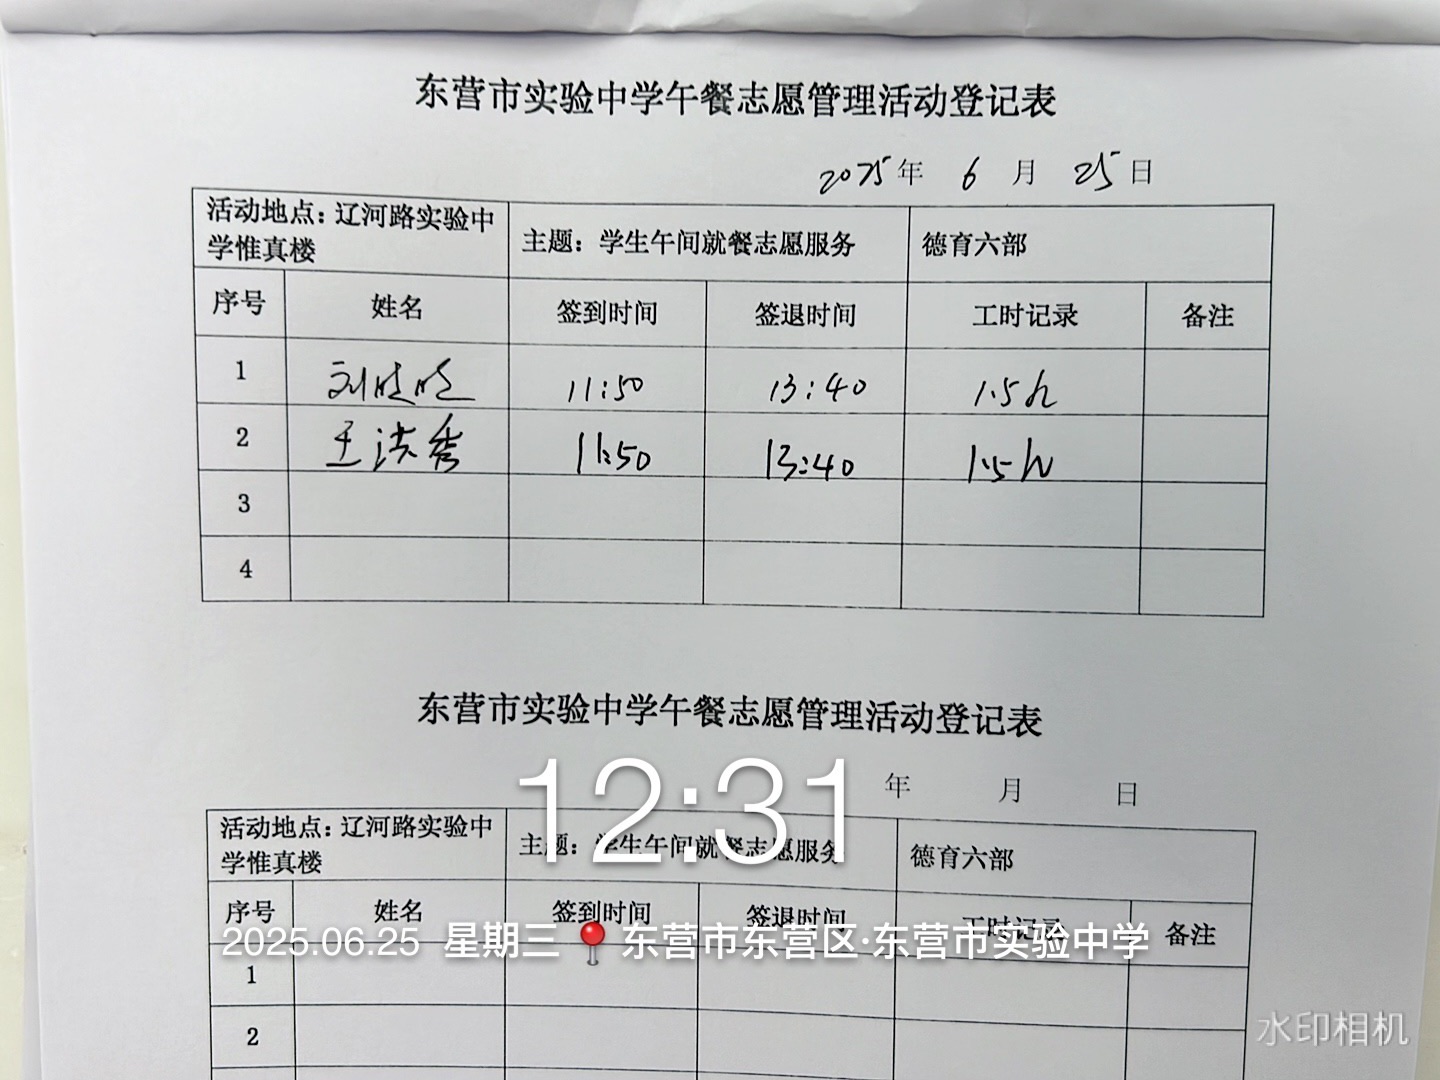 东营市实验中学午餐志愿管理活动登记表
2025年 6 月 25日
活动地点：辽河路实验中学惟真楼 主题：学生午间就餐志愿服务 德育六部
序号 姓名 签到时间 签退时间 工时记录 备注
1 刘晓晓 11:50 13:40 1.5h
2 王洪秀 11:50 13:40 1.5h
3
4
东营市实验中学午餐志愿管理活动登记表
年 月 日
12:31
活动地点：辽河路实验中学惟真楼 主题：学生午间就餐志愿服务 德育六部
序号 姓名 签到时间 签退时间 工时记录 备注
2025.06.25 星期三 东营市东营区·东营市实验中学
1
2
水印相机